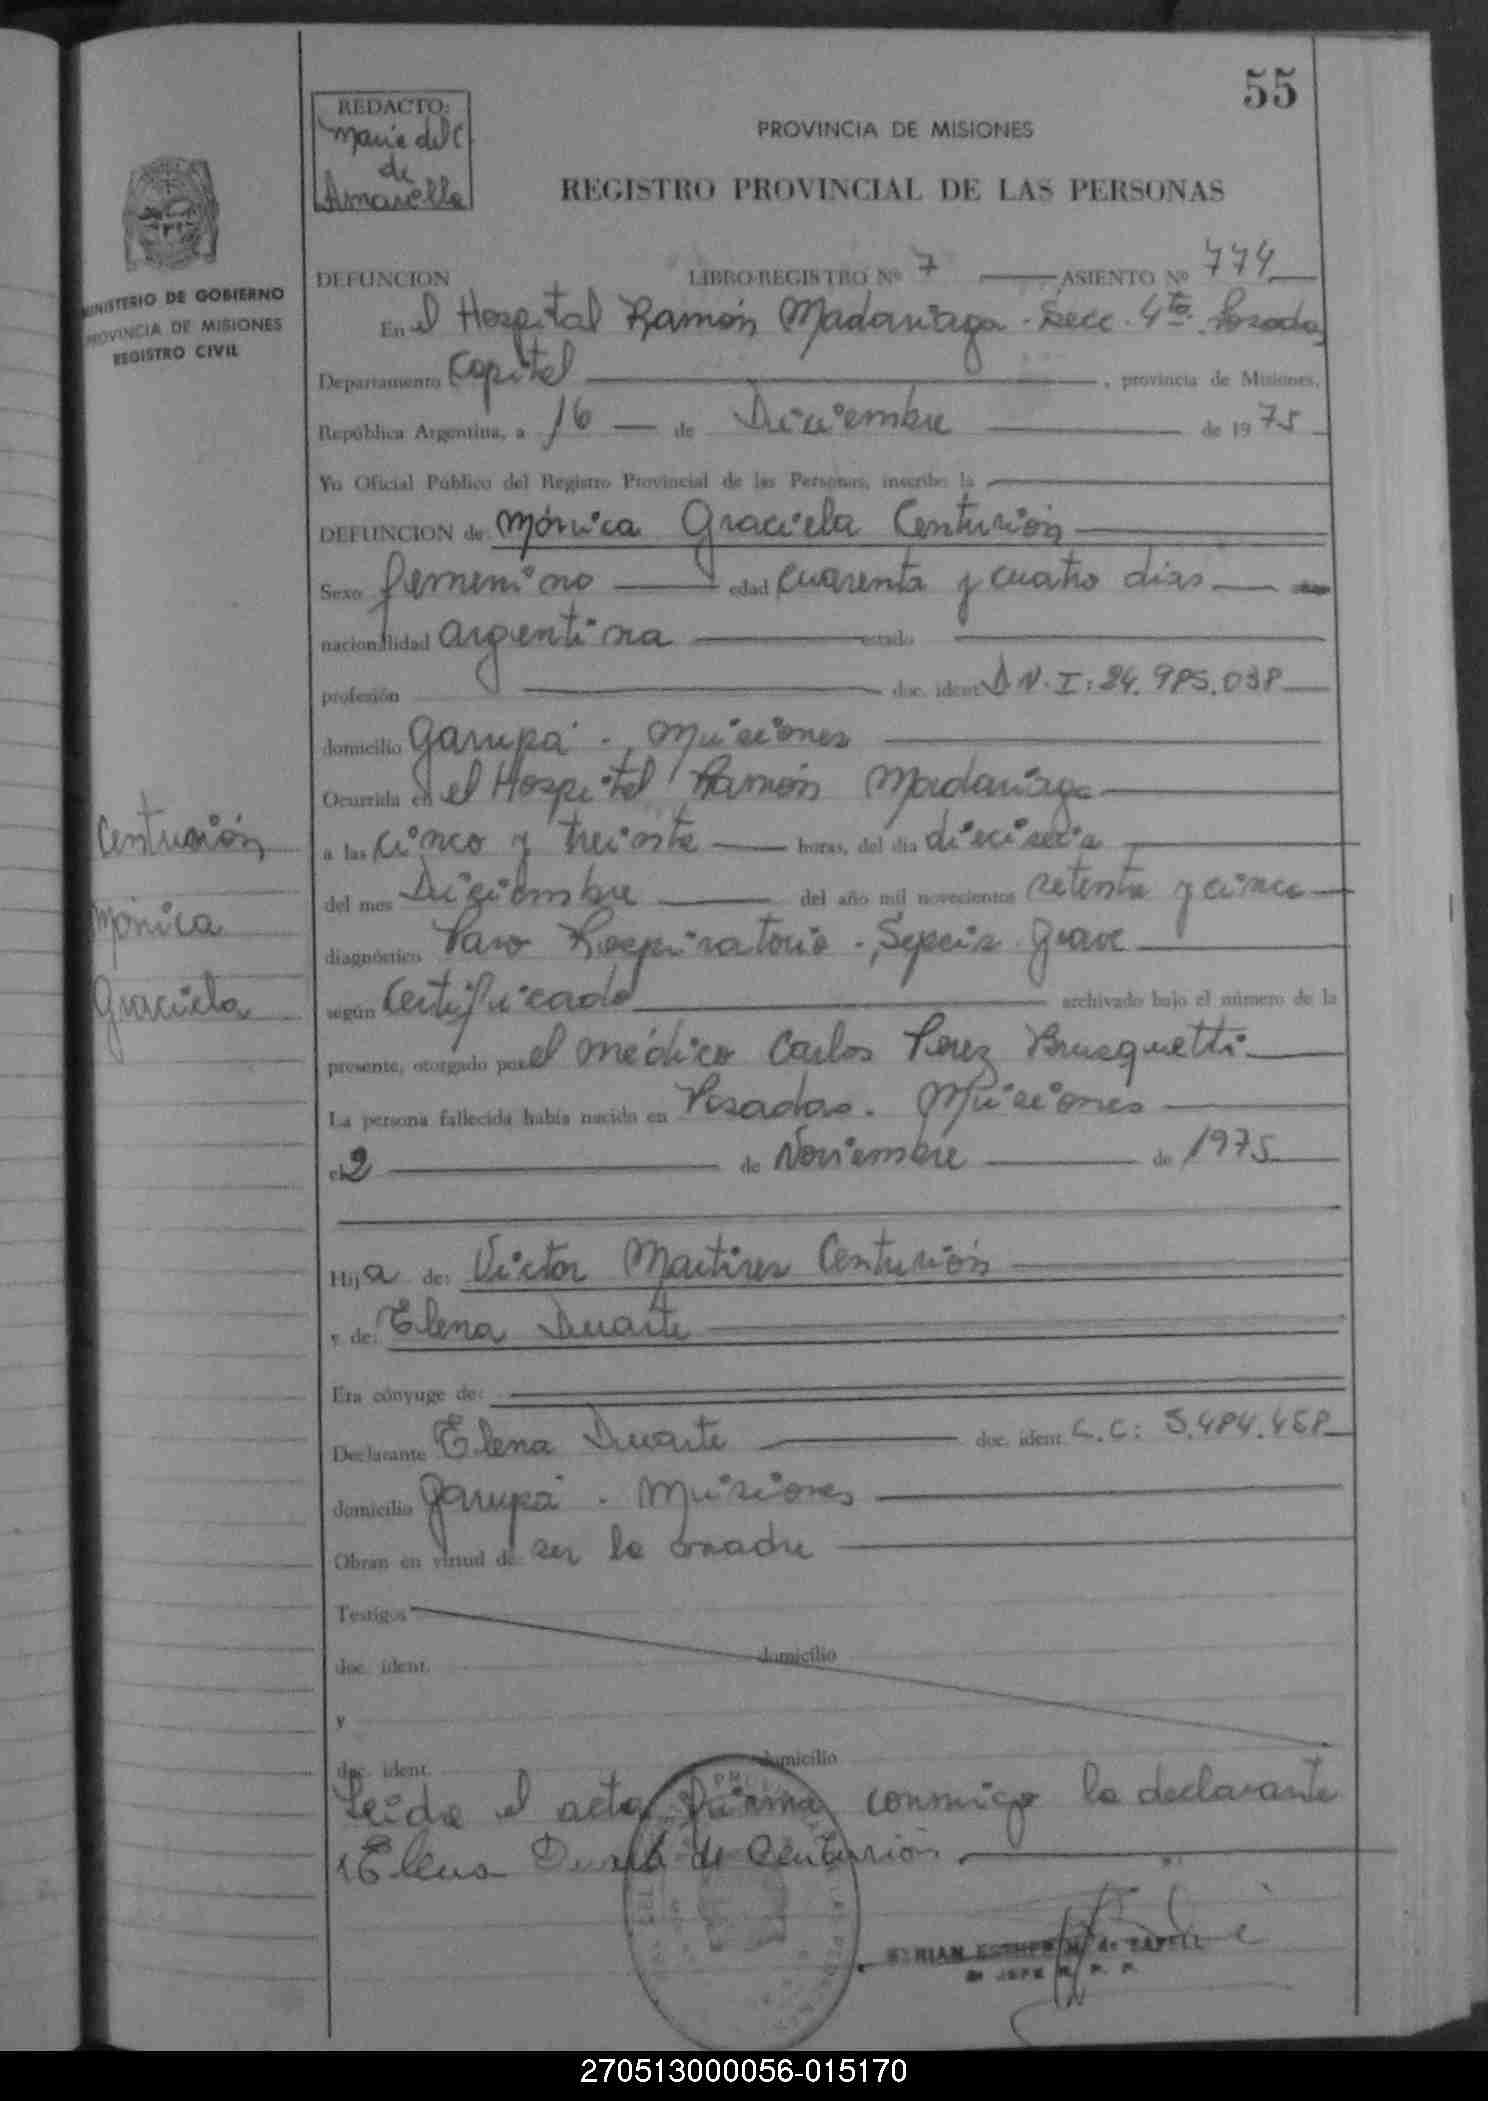 55
REDACTO:
Maria del C
de
Amarella
PROVINCIA DE MISIONES
REGISTRO PROVINCIAL DE LAS PERSONAS
MINISTERIO DE GOBIERNO
PROVINCIA DE MISIONES
REGISTRO CIVIL
DEFUNCION LIBRO-REGISTRO Nº 7 ASIENTO Nº 774
En el Hospital Ramón Madariaga. Secc. 4ta. Posadas
Departamento Capital, provincia de Misiones,
República Argentina, a 16 de Diciembre de 1975
Yo Oficial Público del Registro Provincial de las Personas, inscribo la
DEFUNCION de: Mónica Graciela Centurión
Sexo femenino edad cuarenta y cuatro dias
nacionalidad argentina estado
profesión doc. ident. D.N.I: 24.985.038
domicilio Garupá. Misiones
Ocurrida en el Hospital Ramón Madariaga
a las cinco y treinta horas, del día dieciseis
del mes Diciembre del año mil novecientos setenta y cinco
diagnóstico Paro Respiratorio. Sepsis grave
según Certificado archivado bajo el número de la
presente, otorgado por el médico Carlos Perez Brusquetti
La persona fallecida había nacido en Posadas. Misiones
el 2 de Noviembre de 1975
Centurión
Mónica
Graciela
Hija de: Victor Martires Centurión
y de: Elena Duarte
Era cónyuge de:
Declarante Elena Duarte doc. ident. L.C: 5.484.458
domicilio Garupá. Misiones
Obran en virtud de: ser la madre
Testigos
doc. ident. domicilio
y
doc. ident. domicilio
Leida el acta firma conmigo la declarante
Elena Duarte de Centurión
ESTHER M. de
JEFE R. P. P.
270513000056-015170